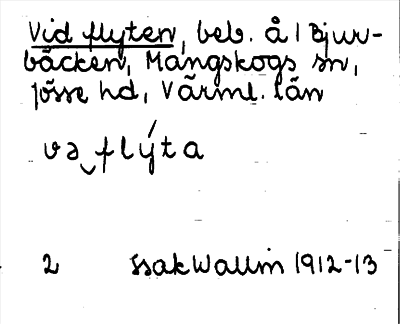 Vid flyten, beb. å l Bjur-
bäcken, Mangskogs sn,
Jösse hd, Värml. län
və‿flýta
2 Isak Wallin 1912-13